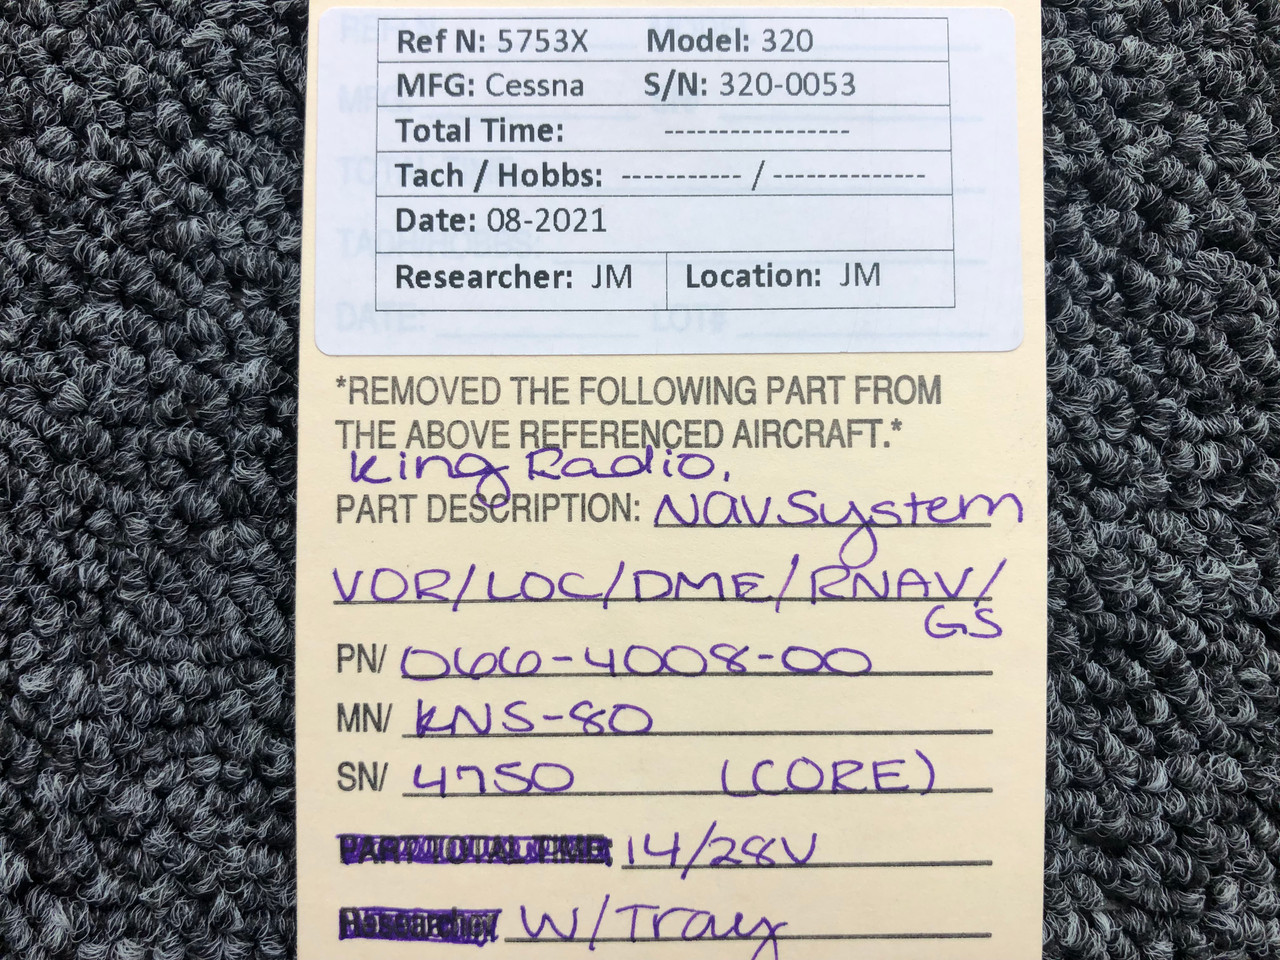 Ref N: 5753X Model: 320
MFG: Cessna S/N: 320-0053
Total Time: -----------------
Tach / Hobbs: ----------- / --------------
Date: 08-2021
Researcher: JM Location: JM
*REMOVED THE FOLLOWING PART FROM
THE ABOVE REFERENCED AIRCRAFT.*
King Radio,
PART DESCRIPTION: NAV System
VOR/LOC/DME/RNAV/
GS
PN/ 066-4008-00
MN/ KNS-80
SN/ 4750 (CORE)
PART TOTAL TIME: 14/28V
W/Tray